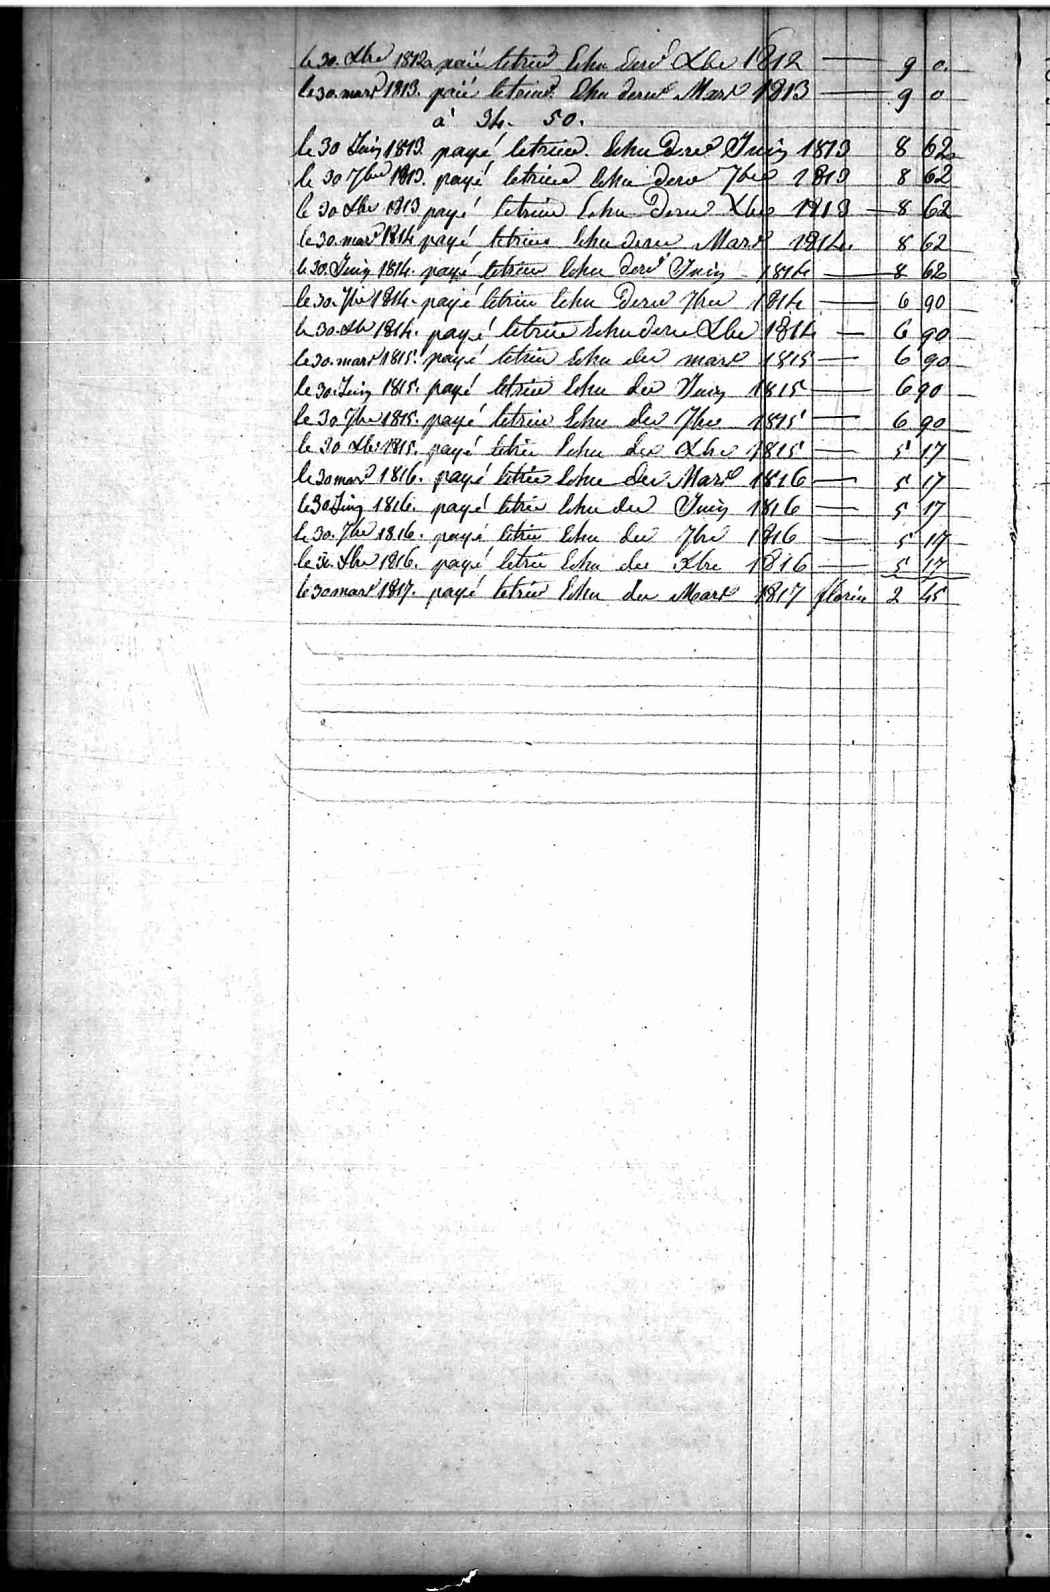 le 30. Xbre 1812 païé letrim echu dud Xbre 1812 — 9 0.
le 30. mars 1813. païé letrim echu dernr Mars 1813 — 9 0
à 34. 50.
le 30 Juin 1813. payé letrim. Echu dernr Juin 1813 8 62
le 30 7bre 1813. payé letrim Echu dernr 7bre 1813 8 62
le 30 Xbre 1813 payé letrim Echu dernr Xbre 1813 — 8 62
le 30. mars 1814 payé letrim Echu dernr Mars 1814. 8 62
le 30. Juin 1814. payé letrim Echu dernr Juin 1814 — 8 62
le 30. 7bre 1814. payé letrim Echu dernr 7bre 1814 — 6 90
le 30. Xbre 1814. payé letrim Echu dernr Xbre 1814 — 6 90
le 30. mars 1815. payé letrim Echu du mars 1815 — 6 90
le 30. Juin 1815. payé letrim Echu du Juin 1815 — 6 90
le 30 7bre 1815. payé letrim Echu du 7bre 1815 — 6 90
le 30 Xbre 1815. payé letrim Echu du Xbre 1815 — 5 17
le 30 mars 1816. payé letrim Echu du Mars 1816 — 5 17
le 30 Juin 1816. payé letrim Echu du Juin 1816 — 5 17
le 30. 7bre 1816. payé letrim Echu du 7bre 1816 — 5 17
le 30. Xbre 1816. payé letrim Echu du Xbre 1816 — 5 17
le 30 mars 1817. payé letrim Echu du Mars 1817 florin 2 45